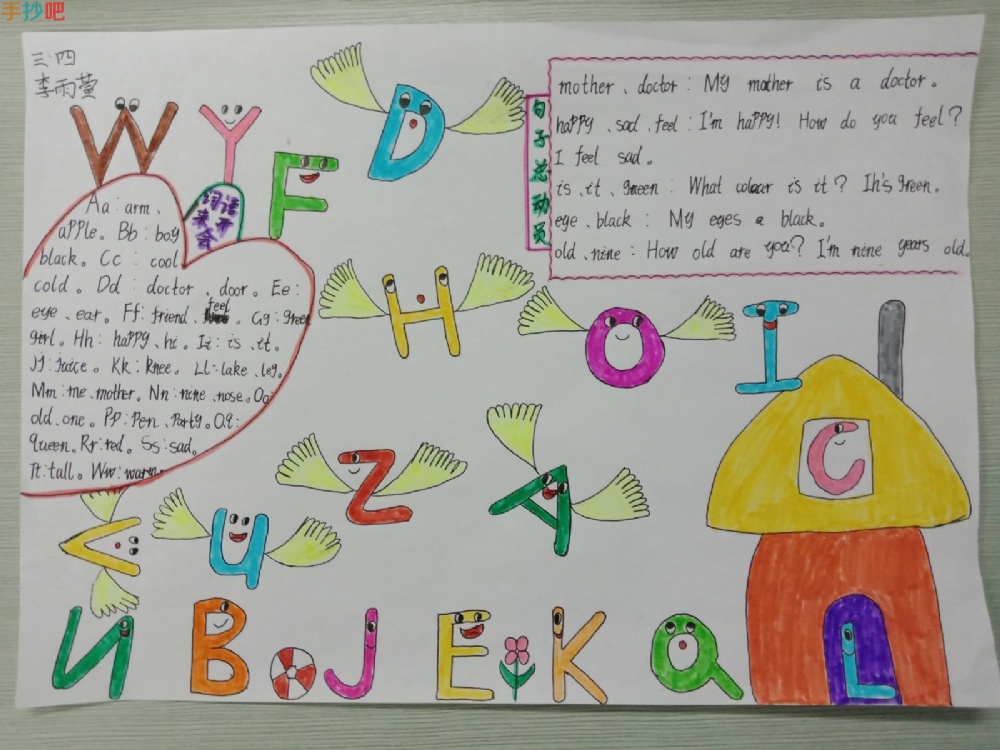 手抄吧
三.四
李雨萱
W Y F D
词语
来开
会
Aa:arm、
apple。Bb:boy
black。Cc:cool
cold。Dd:doctor、door。Ee:
eye、ear。Ff:friend、feel。Gg:green
girl。Hh:happy、hi。Ii:is、it。
Jj:juice。Kk:knee。Ll:lake、leg。
Mm:me、mother。Nn:nine、nose。Oo:
old、one。Pp:Pen、Party。Qq:
queen。Rr:red。Ss:sad。
Tt:tall。Ww:warm
句子总动员
mother、doctor: My mother is a doctor。
happy、sad、feel: I'm happy! How do you feel?
I feel sad。
is、it、green: What colour is it? Ih's green。
eye、black: My eyes a black。
old、nine: How old are you? I'm nine years old。
H O I
C
Z A
V U
N B J E K Q L